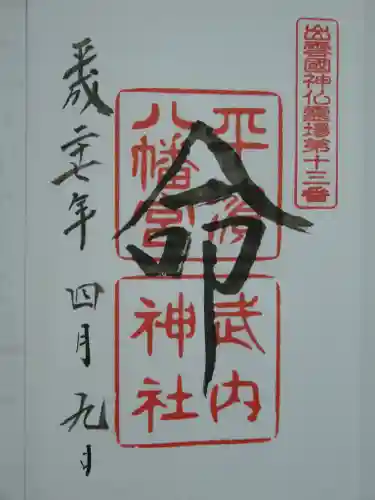 出雲國神仏霊場第十三番
命
平濱
八幡宮
武内
神社
平成二十七年四月九日